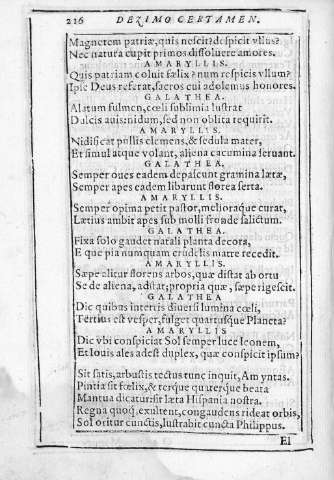 216 DEZIMO CERTAMEN.
Magnetem patriæ, quis nescit? despicit vllus?
Nec natura cupit primos dissoluere amores.
AMARYLLIS.
Quis patriam coluit fœlix? num respicis vllum?
Ipse Deus referat, sacros cui adolemus honores.
GALATHEA.
Alatum fulmen, cœli sublimia lustrat
Dulcis auis: nidum, sed non oblita requirit.
AMARYLLIS.
Nidificat pullis clemens, & sedula mater,
Et simul atque volant, aliena cacumina seruant.
GALATHEA.
Semper oues eadem depascunt gramina lætæ,
Semper apes eadem libarunt florea serta.
AMARYLLIS.
Semper opima petit pastor, melioraque curat,
Lætius ambit apes sub molli fronde salictum.
GALATHEA.
Fixa solo gaudet natali planta decora,
E que pia numquam crudelis matre recedit.
AMARYLLIS.
Sæpe alitur florens arbos, quæ distat ab ortu
Se de aliena, adstat; propria quæ, sæpe rigescit.
GALATHEA
Dic quibus interris diuersi lumina cœli,
Tertius est vesper, fulget quartusque Planeta?
AMARYLLIS
Dic vbi conspiciat Sol semper luce leonem,
Et Iouis ales adest duplex, quæ conspicit ipsum?
Sit satis, arbustis tectus tunc inquit, Amyntas.
Pintia sit fœlix, & terque quaterque beata
Mantua dicatur: sit læta Hispania nostra.
Regna quoq. exultent, congaudens rideat orbis,
Sol oritur cunctis, lustrabit cuncta Philippus.
El